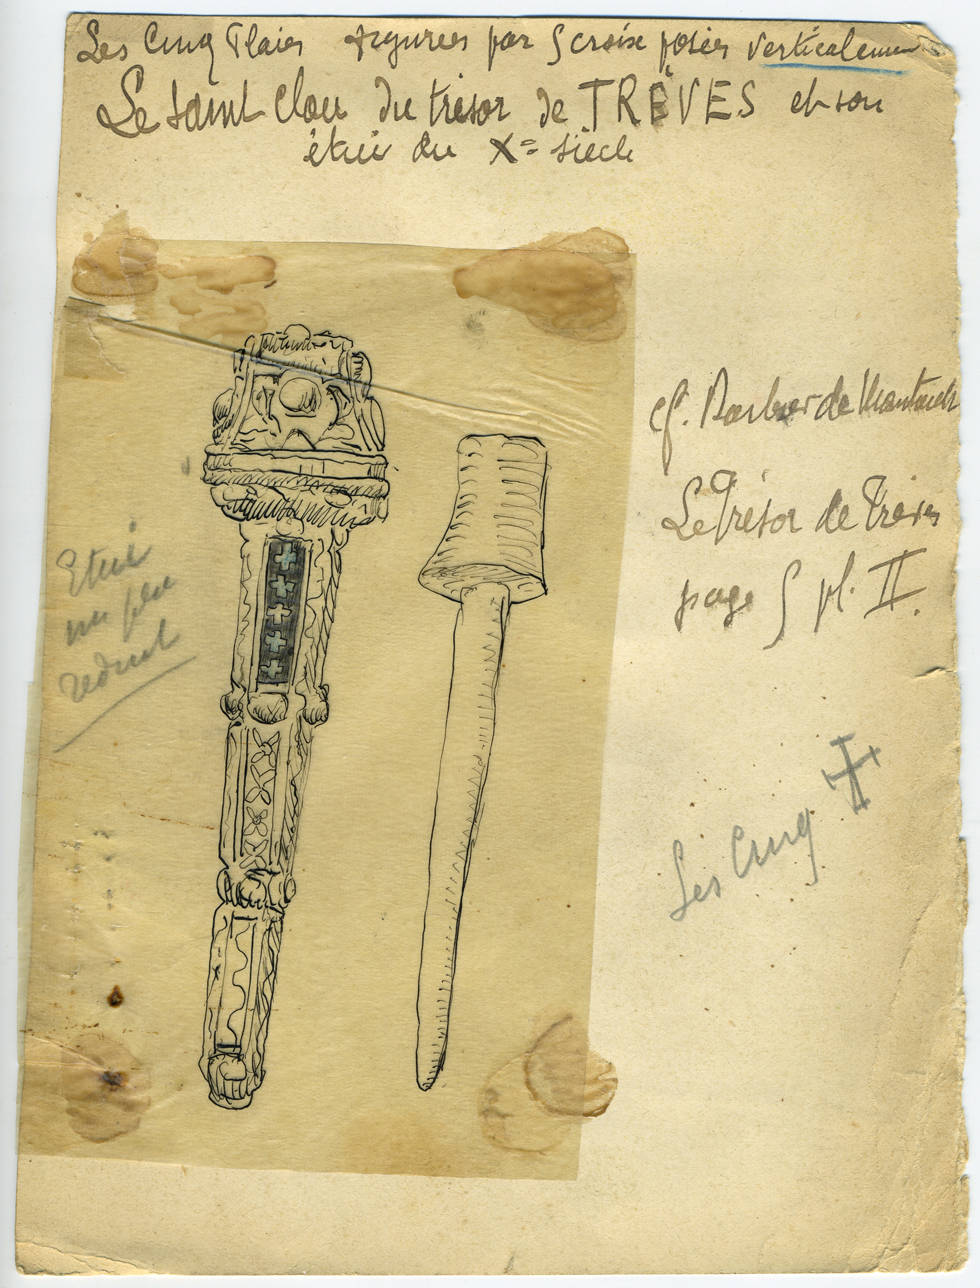 Les Cinq Plaies figurées par 5 croix posées verticalemen
Le saint Clou du trésor de TRÈVES et son
étui du Xe siècle
cf. Barbier de Montault
Le Trésor de Trèves
page 5 pl. II.
Etui
un peu
réduit
Les Cinq